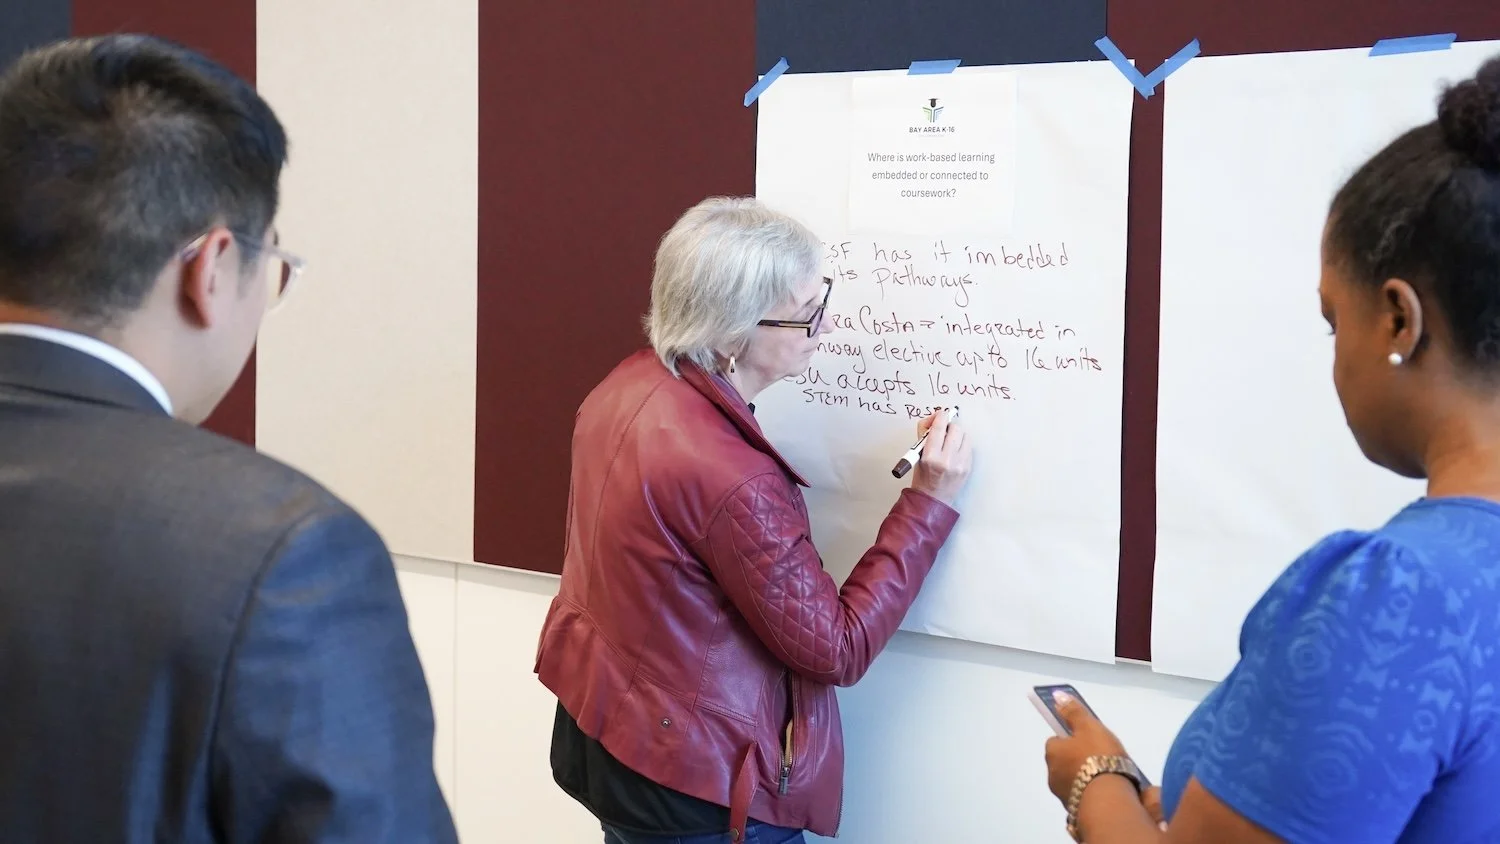 BAY AREA K-16
Where is work-based learning
embedded or connected to
coursework?
has it imbedded
Pathways.
Costa = integrated in
elective up to 16 units
accepts 16 units.
STEM has